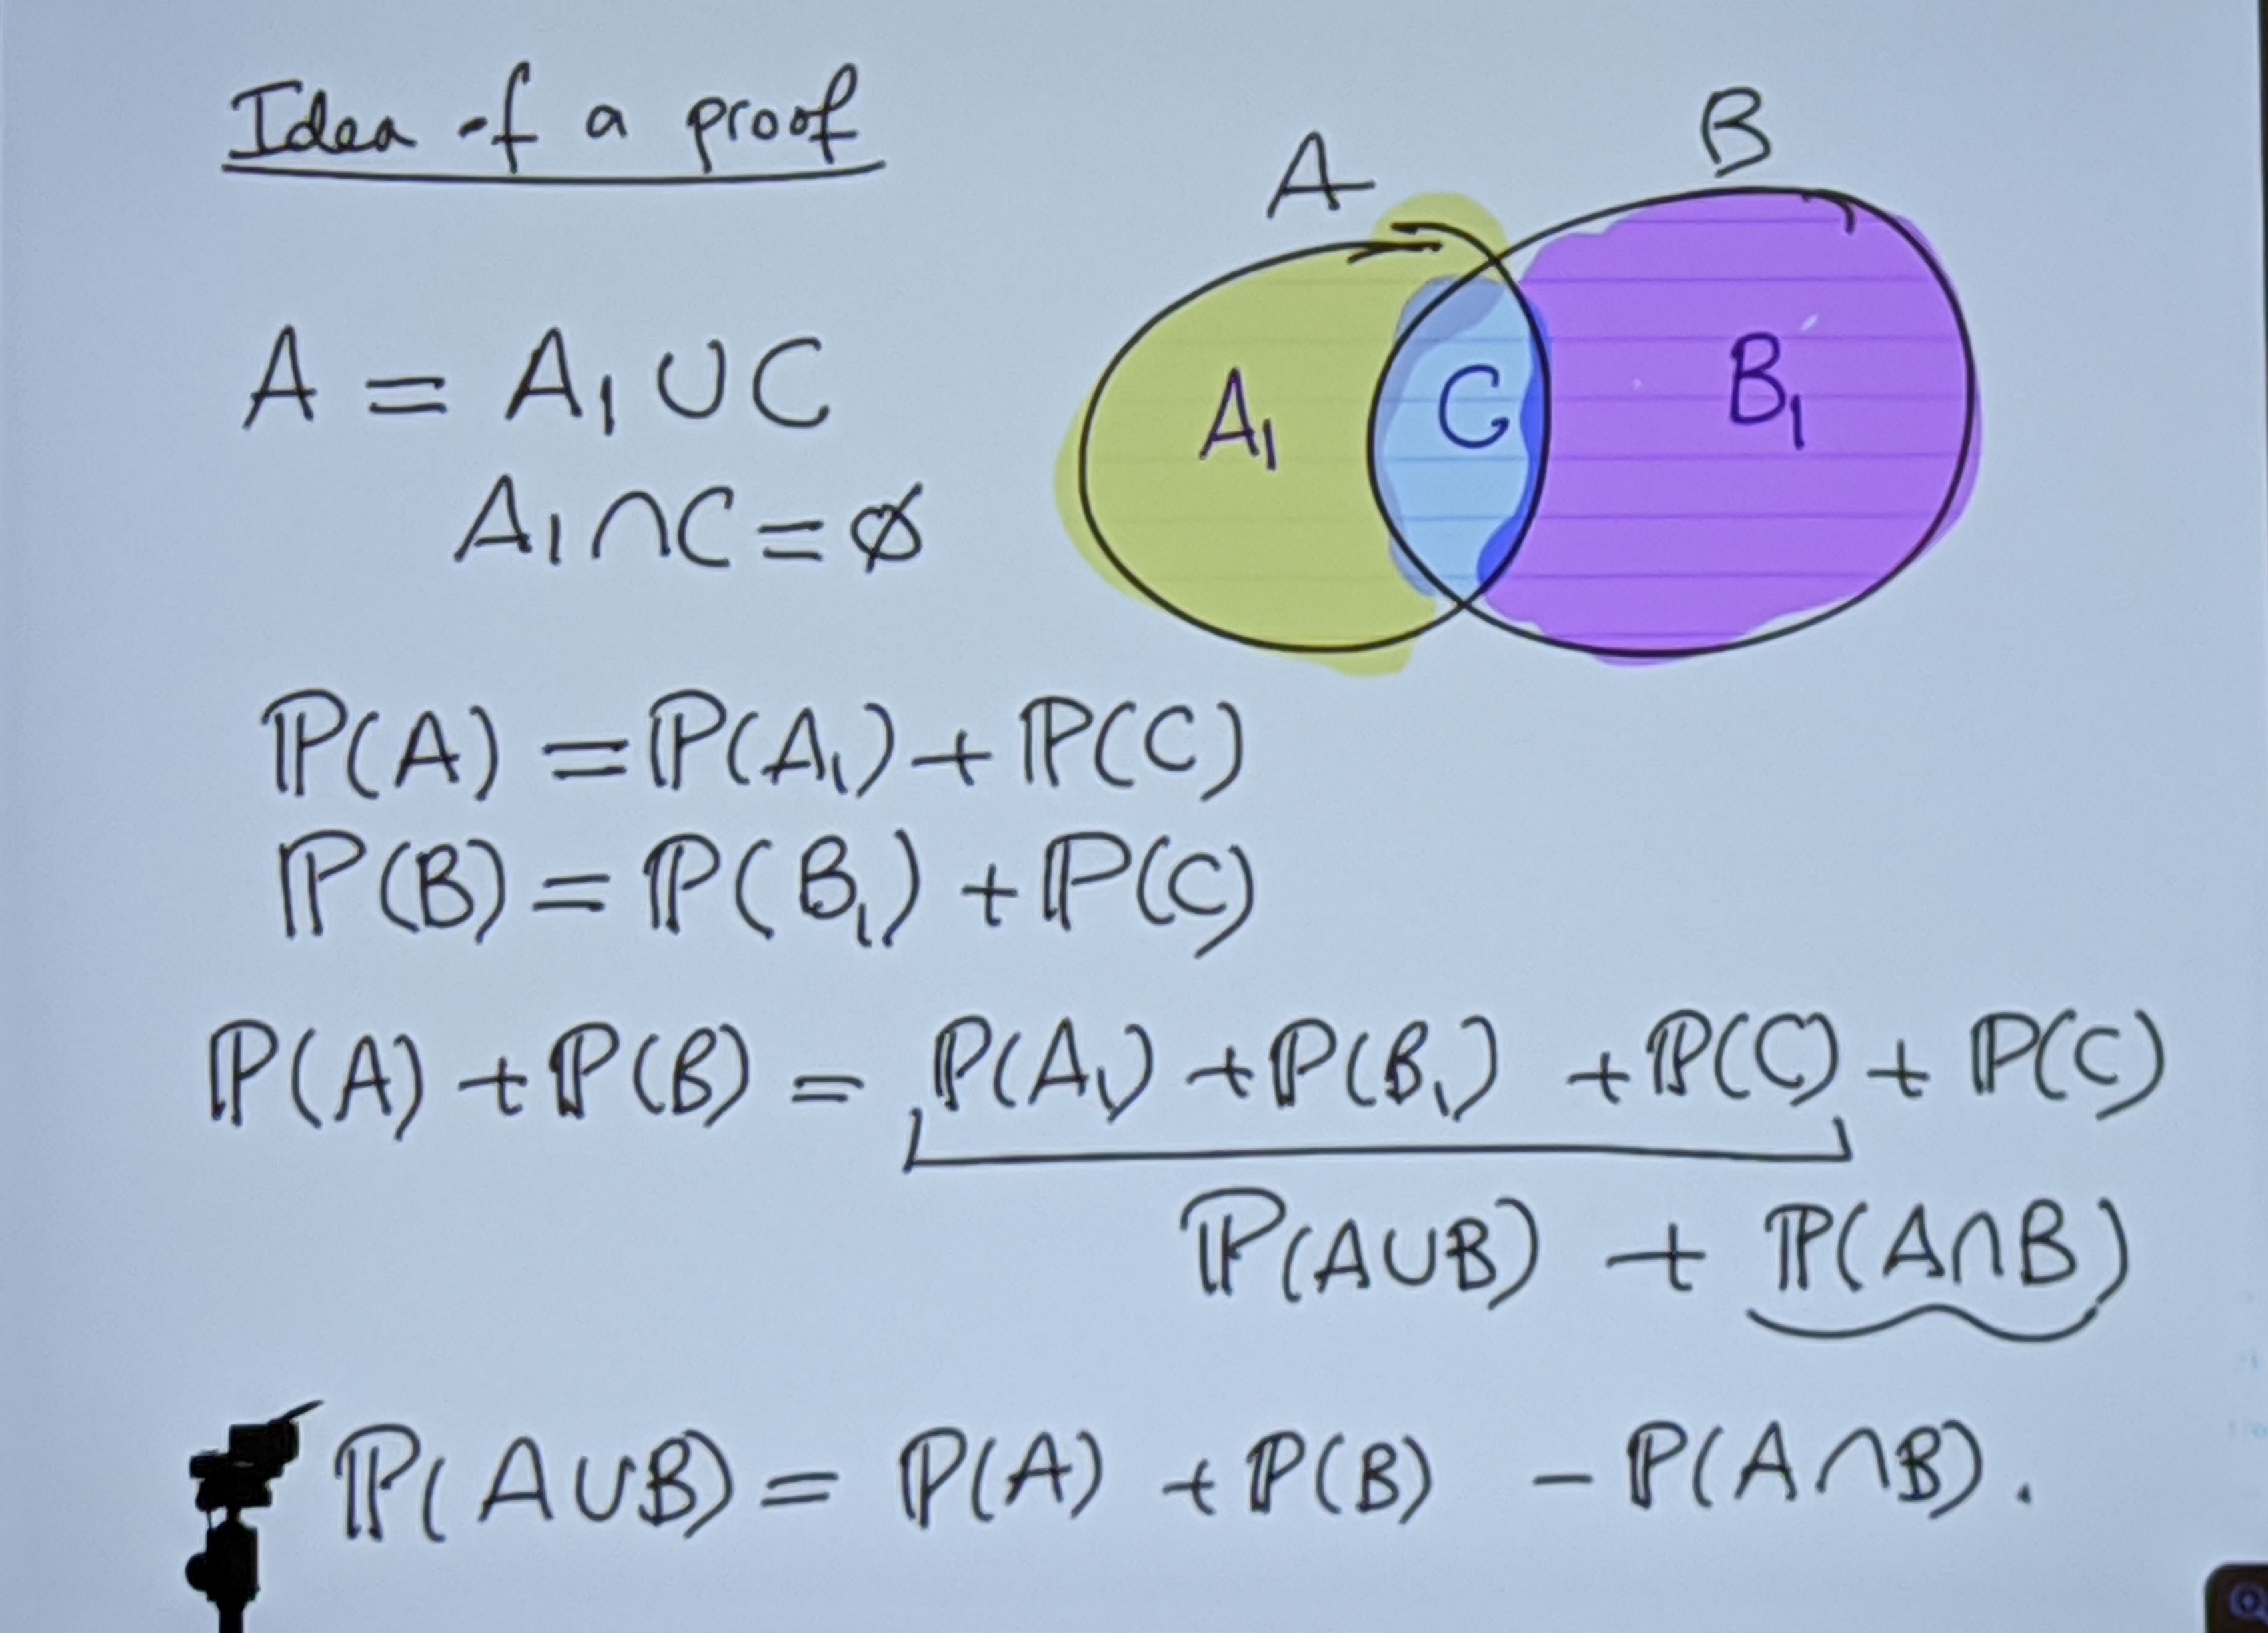 Idea of a proof
A
B
A₁
C
B₁
A = A₁ ∪ C
A₁ ∩ C = ∅
ℙ(A) = ℙ(A₁) + ℙ(C)
ℙ(B) = ℙ(B₁) + ℙ(C)
ℙ(A) + ℙ(B) = ℙ(A₁) + ℙ(B₁) + ℙ(C) + ℙ(C)
ℙ(A∪B) + ℙ(A∩B)
ℙ(A∪B) = ℙ(A) + ℙ(B) − ℙ(A∩B).